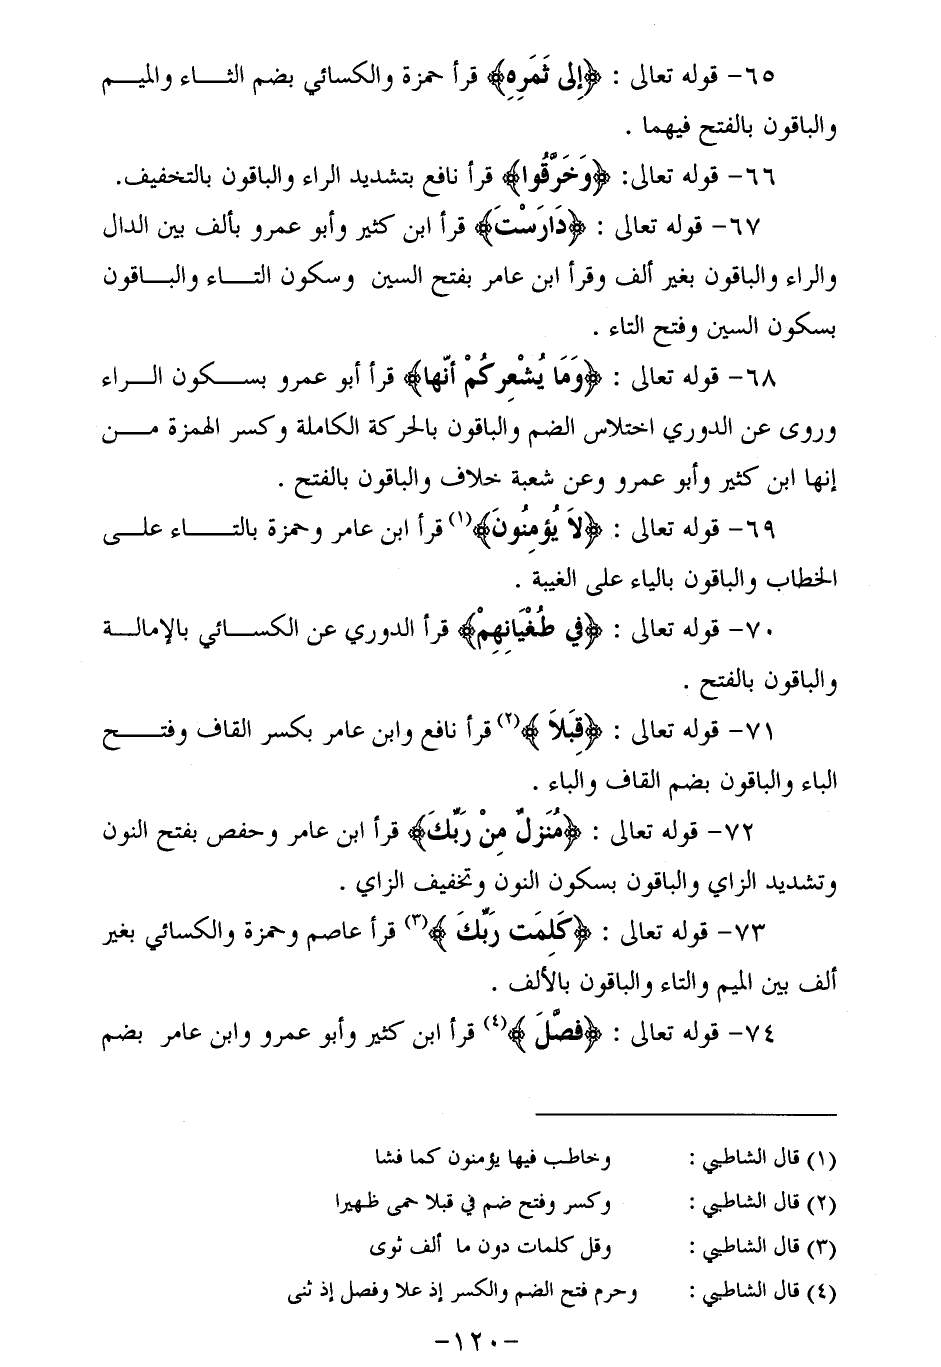 ٦٥- قوله تعالى : ﴿إِلى ثَمَرِهِ﴾ قرأ حمزة والكسائي بضم الثاء والميم
والباقون بالفتح فيهما .
٦٦- قوله تعالى: ﴿وَخَرَّقُوا﴾ قرأ نافع بتشديد الراء والباقون بالتخفيف.
٦٧- قوله تعالى : ﴿دَارَسْتَ﴾ قرأ ابن كثير وأبو عمرو بألف بين الدال
والراء والباقون بغير ألف وقرأ ابن عامر بفتح السين وسكون التاء والباقون
بسكون السين وفتح التاء .
٦٨- قوله تعالى : ﴿وَمَا يُشْعِركُمْ أنّها﴾ قرأ أبو عمرو بسكون الراء
وروى عن الدوري اختلاس الضم والباقون بالحركة الكاملة وكسر الهمزة من
إنها ابن كثير وأبو عمرو وعن شعبة خلاف والباقون بالفتح .
٦٩- قوله تعالى : ﴿لاَ يُؤمِنُونَ﴾(١) قرأ ابن عامر وحمزة بالتاء على
الخطاب والباقون بالياء على الغيبة .
٧٠- قوله تعالى : ﴿فِي طُغْيَانِهِمْ﴾ قرأ الدوري عن الكسائي بالإمالة
والباقون بالفتح .
٧١- قوله تعالى : ﴿قِبَلاَ ﴾(٢) قرأ نافع وابن عامر بكسر القاف وفتح
الباء والباقون بضم القاف والباء .
٧٢- قوله تعالى : ﴿مُنَزلٌ مِنْ رَبِّكَ﴾ قرأ ابن عامر وحفص بفتح النون
وتشديد الزاي والباقون بسكون النون وتخفيف الزاي .
٧٣- قوله تعالى : ﴿كَلِمَت رَبِّكَ ﴾(٣) قرأ عاصم وحمزة والكسائي بغير
ألف بين الميم والتاء والباقون بالألف .
٧٤- قوله تعالى : ﴿فصَّلَ ﴾(٤) قرأ ابن كثير وأبو عمرو وابن عامر بضم
(١) قال الشاطبي : وخاطب فيها يؤمنون كما فشا
(٢) قال الشاطبي : وكسر وفتح ضم في قبلا حمى ظهيرا
(٣) قال الشاطبي : وقل كلمات دون ما ألف ثوى
(٤) قال الشاطبي : وحرم فتح الضم والكسر إذ علا وفصل إذ ثنى
-١٢٠-